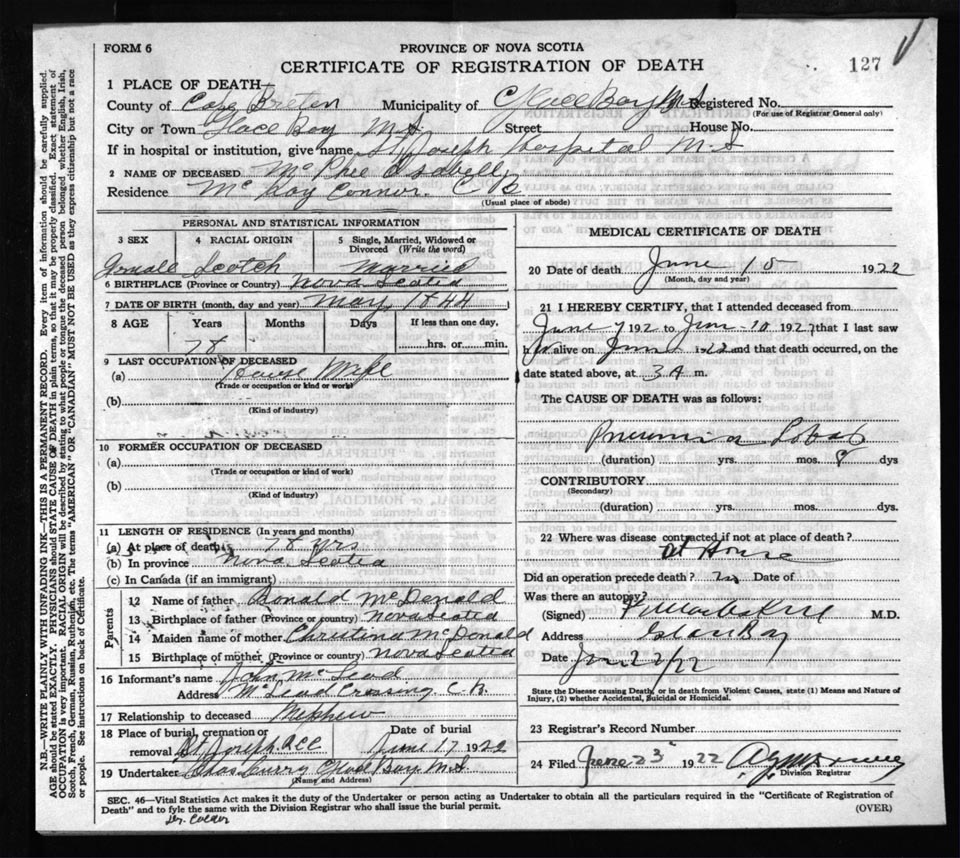 FORM 6
PROVINCE OF NOVA SCOTIA
CERTIFICATE OF REGISTRATION OF DEATH
127
1 PLACE OF DEATH
County of Cape Breton Municipality of Glace Bay N.S Registered No.
(For use of Registrar General only)
City or Town Glace Bay N.S Street House No.
If in hospital or institution, give name St Joseph Hospital N.S
2 NAME OF DECEASED McPhee Isabelly
Residence McKay Connor. C B
(Usual place of abode)
PERSONAL AND STATISTICAL INFORMATION
3 SEX 4 RACIAL ORIGIN 5 Single, Married, Widowed or Divorced (Write the word)
Female Scotch Married
6 BIRTHPLACE (Province or Country) Nova Scotia
7 DATE OF BIRTH (month, day and year) May 1844
8 AGE Years Months Days If less than one day,
78 hrs. or min.
9 LAST OCCUPATION OF DECEASED
(a) House Wife
(Trade or occupation or kind of work)
(b)
(Kind of industry)
10 FORMER OCCUPATION OF DECEASED
(a)
(Trade or occupation or kind of work)
(b)
(Kind of industry)
11 LENGTH OF RESIDENCE (In years and months)
(a) At place of death 78 yrs
(b) In province Nova Scotia
(c) In Canada (if an immigrant)
Parents
12 Name of father Donald McDonald
13 Birthplace of father (Province or country) Nova Scotia
14 Maiden name of mother Christina McDonald
15 Birthplace of mother (Province or country) Nova Scotia
16 Informant's name John McLeod
Address McLeod Crossing C.B.
17 Relationship to deceased Nephew
18 Place of burial, cremation or removal St Joseph Date of burial June 17 1922
19 Undertaker Chas Curry Glace Bay N.S
(Name and Address)
MEDICAL CERTIFICATE OF DEATH
20 Date of death June 15 1922
(Month, day and year)
21 I HEREBY CERTIFY, that I attended deceased from
June 7 192 to June 10 1922 that I last saw
her alive on June 1922 and that death occurred, on the
date stated above, at 3 A m.
The CAUSE OF DEATH was as follows:
Pneumonia Lobar
(duration) yrs. mos. 9 dys
CONTRIBUTORY
(Secondary)
(duration) yrs. mos. dys.
22 Where was disease contracted if not at place of death?
At House
Did an operation precede death? no Date of
Was there an autopsy?
(Signed) M.D.
Address Glace Bay
Date June 22/22
State the Disease causing Death, or in death from Violent Causes, state (1) Means and Nature of
Injury, (2) whether Accidental, Suicidal or Homicidal.
23 Registrar's Record Number
24 Filed June 23 1922
Division Registrar
SEC. 46—Vital Statistics Act makes it the duty of the Undertaker or person acting as Undertaker to obtain all the particulars required in the "Certificate of Registration of
Death" and to fyle the same with the Division Registrar who shall issue the burial permit.
(OVER)
N.B.—WRITE PLAINLY WITH UNFADING INK—THIS IS A PERMANENT RECORD. Every item of information should be carefully supplied.
AGE should be stated EXACTLY. PHYSICIANS should STATE CAUSE OF DEATH in plain terms, so that it may be properly classified. Exact statement of
OCCUPATION is very important. RACIAL ORIGIN will be described by stating to what people or tongue the deceased person belonged whether English, Irish,
Scotch, French, German, Russian, Ruthenian, etc. The terms "AMERICAN" OR "CANADIAN" MUST NOT BE USED as they express citizenship but not a race
or people. See instructions on back of Certificate.